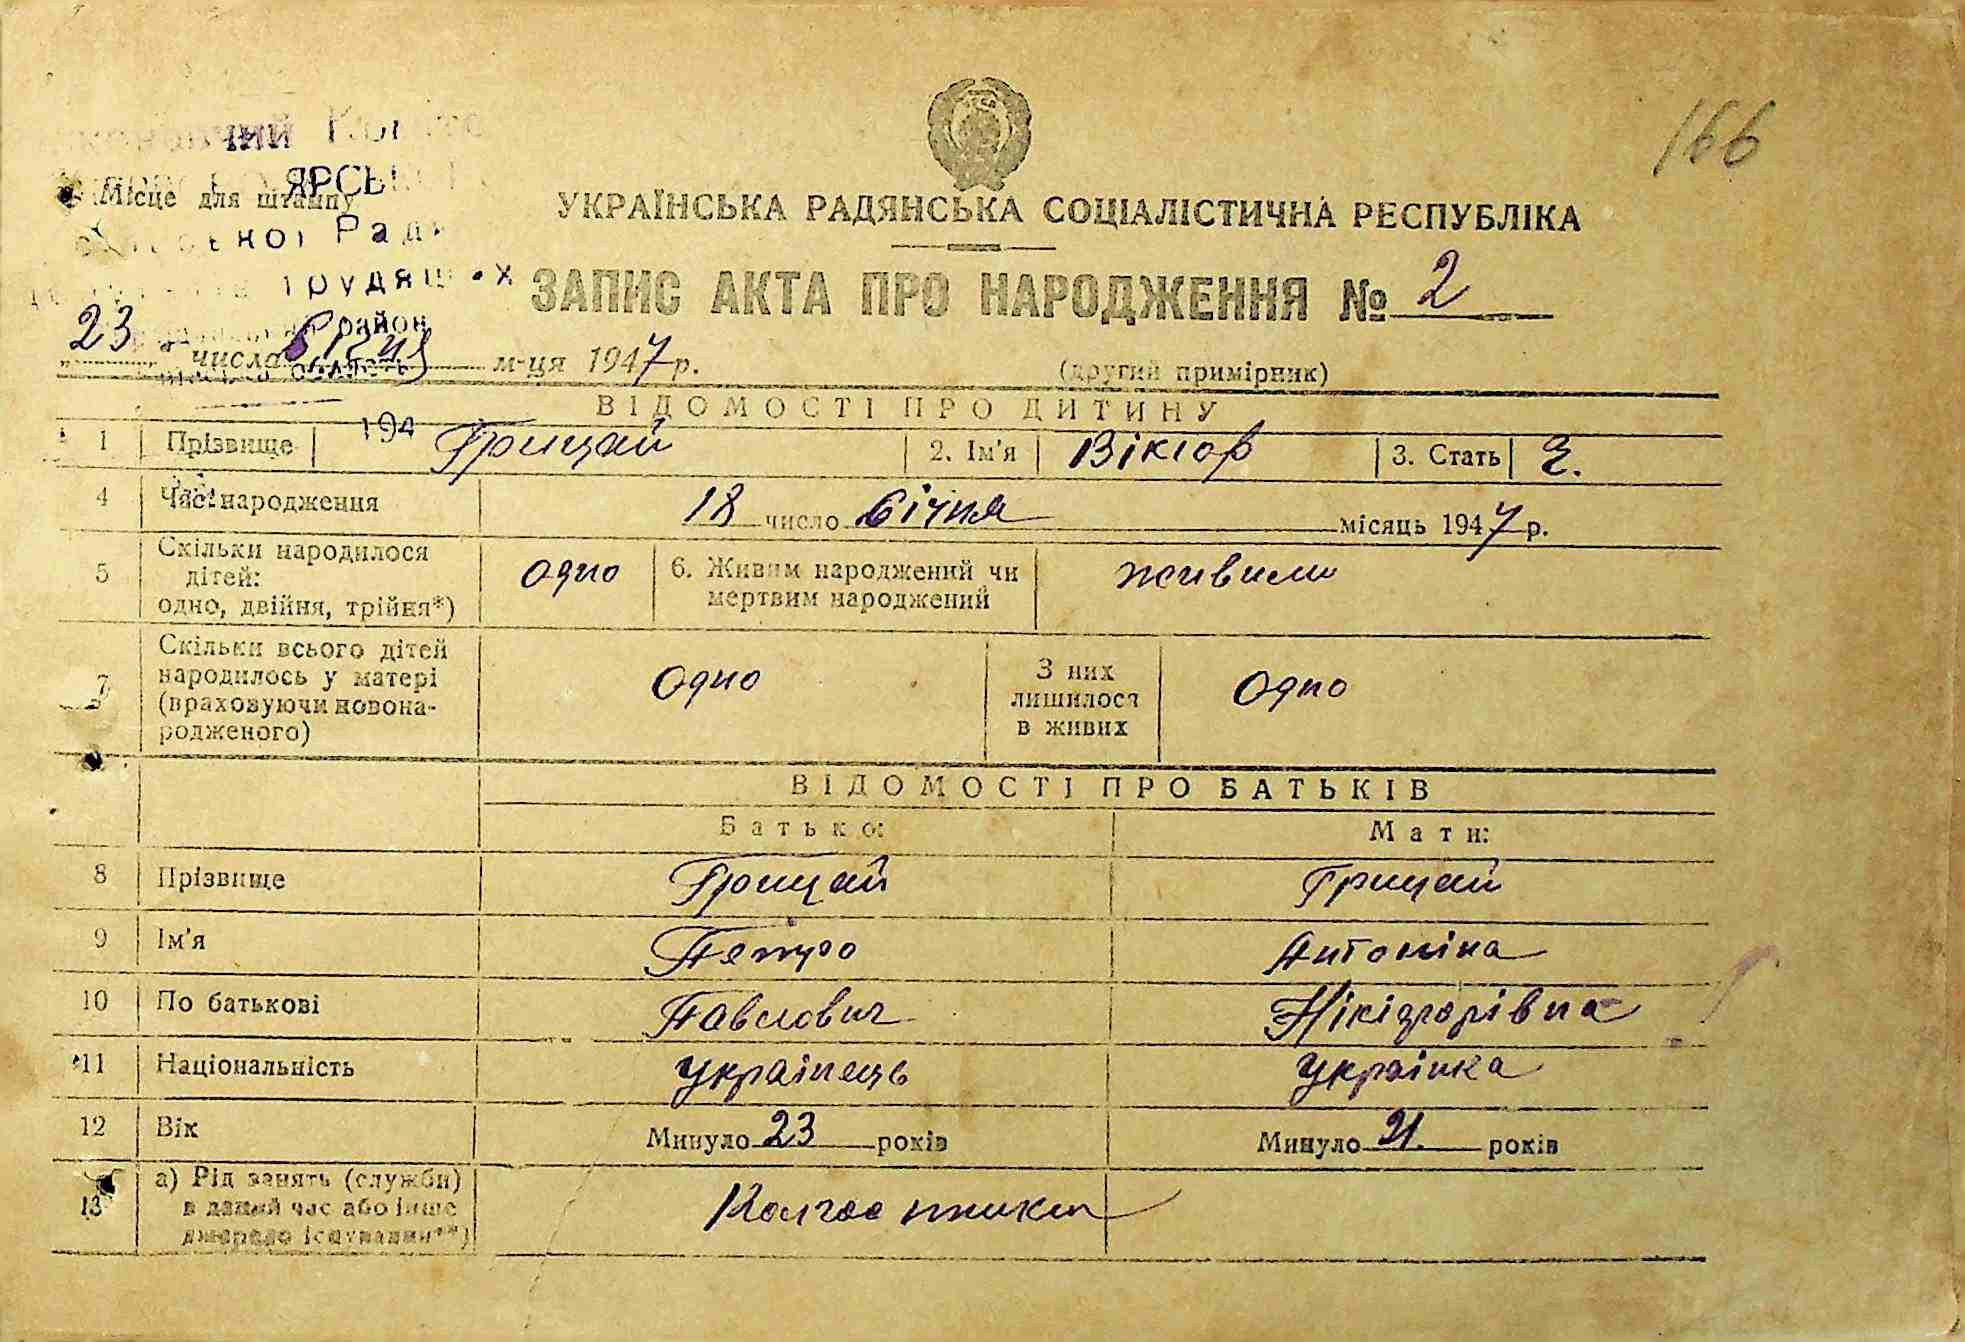 166
ЯРСЬ
Місце для штампу
Ради
трудящих
район
УКРАЇНСЬКА РАДЯНСЬКА СОЦІАЛІСТИЧНА РЕСПУБЛІКА
ЗАПИС АКТА ПРО НАРОДЖЕННЯ № 2
„23 числа січня м-ця 1947 р.
(другий примірник)
ВІДОМОСТІ ПРО ДИТИНУ
194
1 Прізвище Грицай 2. Ім'я Віктор 3. Стать Ч.
4 Час народження 18 число січня місяць 1947 р.
5 Скільки народилося дітей: одно, двійня, трійня*) одно 6. Живим народжений чи мертвим народжений живим
7 Скільки всього дітей народилось у матері (враховуючи новонародженого) Одно З них лишилося в живих Одно
ВІДОМОСТІ ПРО БАТЬКІВ
Батько: Мати:
8 Прізвище Грицай Грицай
9 Ім'я Петро Антоніна
10 По батькові Павлович Нікіфорівна
11 Національність українець українка
12 Вік Минуло 23 років Минуло 21 років
13 а) Рід занять (служби) в даний час або інше джерело існування**) Колгоспники